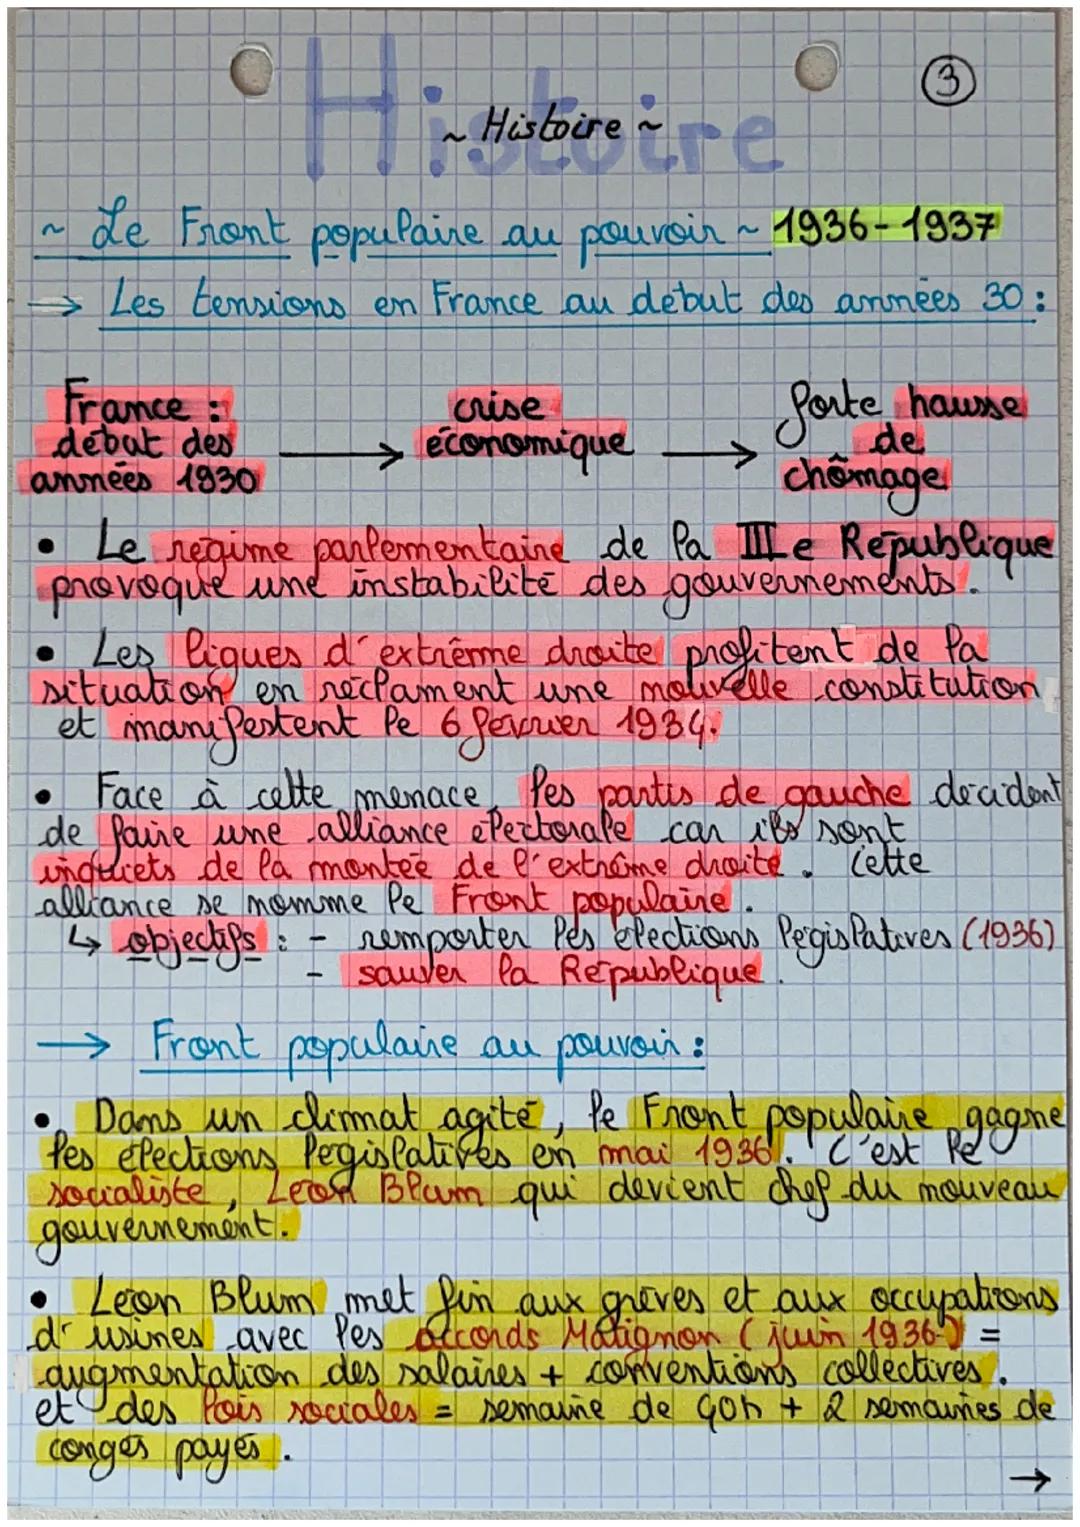 Histoire
③
~ Histoire ~
~ Le Front populaire au pouvoir ~ 1936-1937
→ Les tensions en France au début des années 30 :
France : début des années 1930 → crise économique → forte hausse de chômage
• Le régime parlementaire de la IIIe République
provoque une instabilité des gouvernements.
• Les ligues d'extrême droite profitent de la
situation en réclament une nouvelle constitution
et manifestent le 6 février 1934.
• Face à cette menace, les partis de gauche décident
de faire une alliance électorale car ils sont
inquiets de la montée de l'extrême droite. Cette
alliance se nomme le Front populaire.
↳ objectifs : - remporter les élections législatives (1936)
- sauver la République.
→ Front populaire au pouvoir :
• Dans un climat agité, le Front populaire gagne
les élections législatives en mai 1936. C'est le
socialiste, Léon Blum qui devient chef du nouveau
gouvernement.
• Léon Blum met fin aux grèves et aux occupations
d'usines avec les accords Matignon (juin 1936) =
augmentation des salaires + conventions collectives.
et des lois sociales = semaine de 40h + 2 semaines de
congés payés.
→